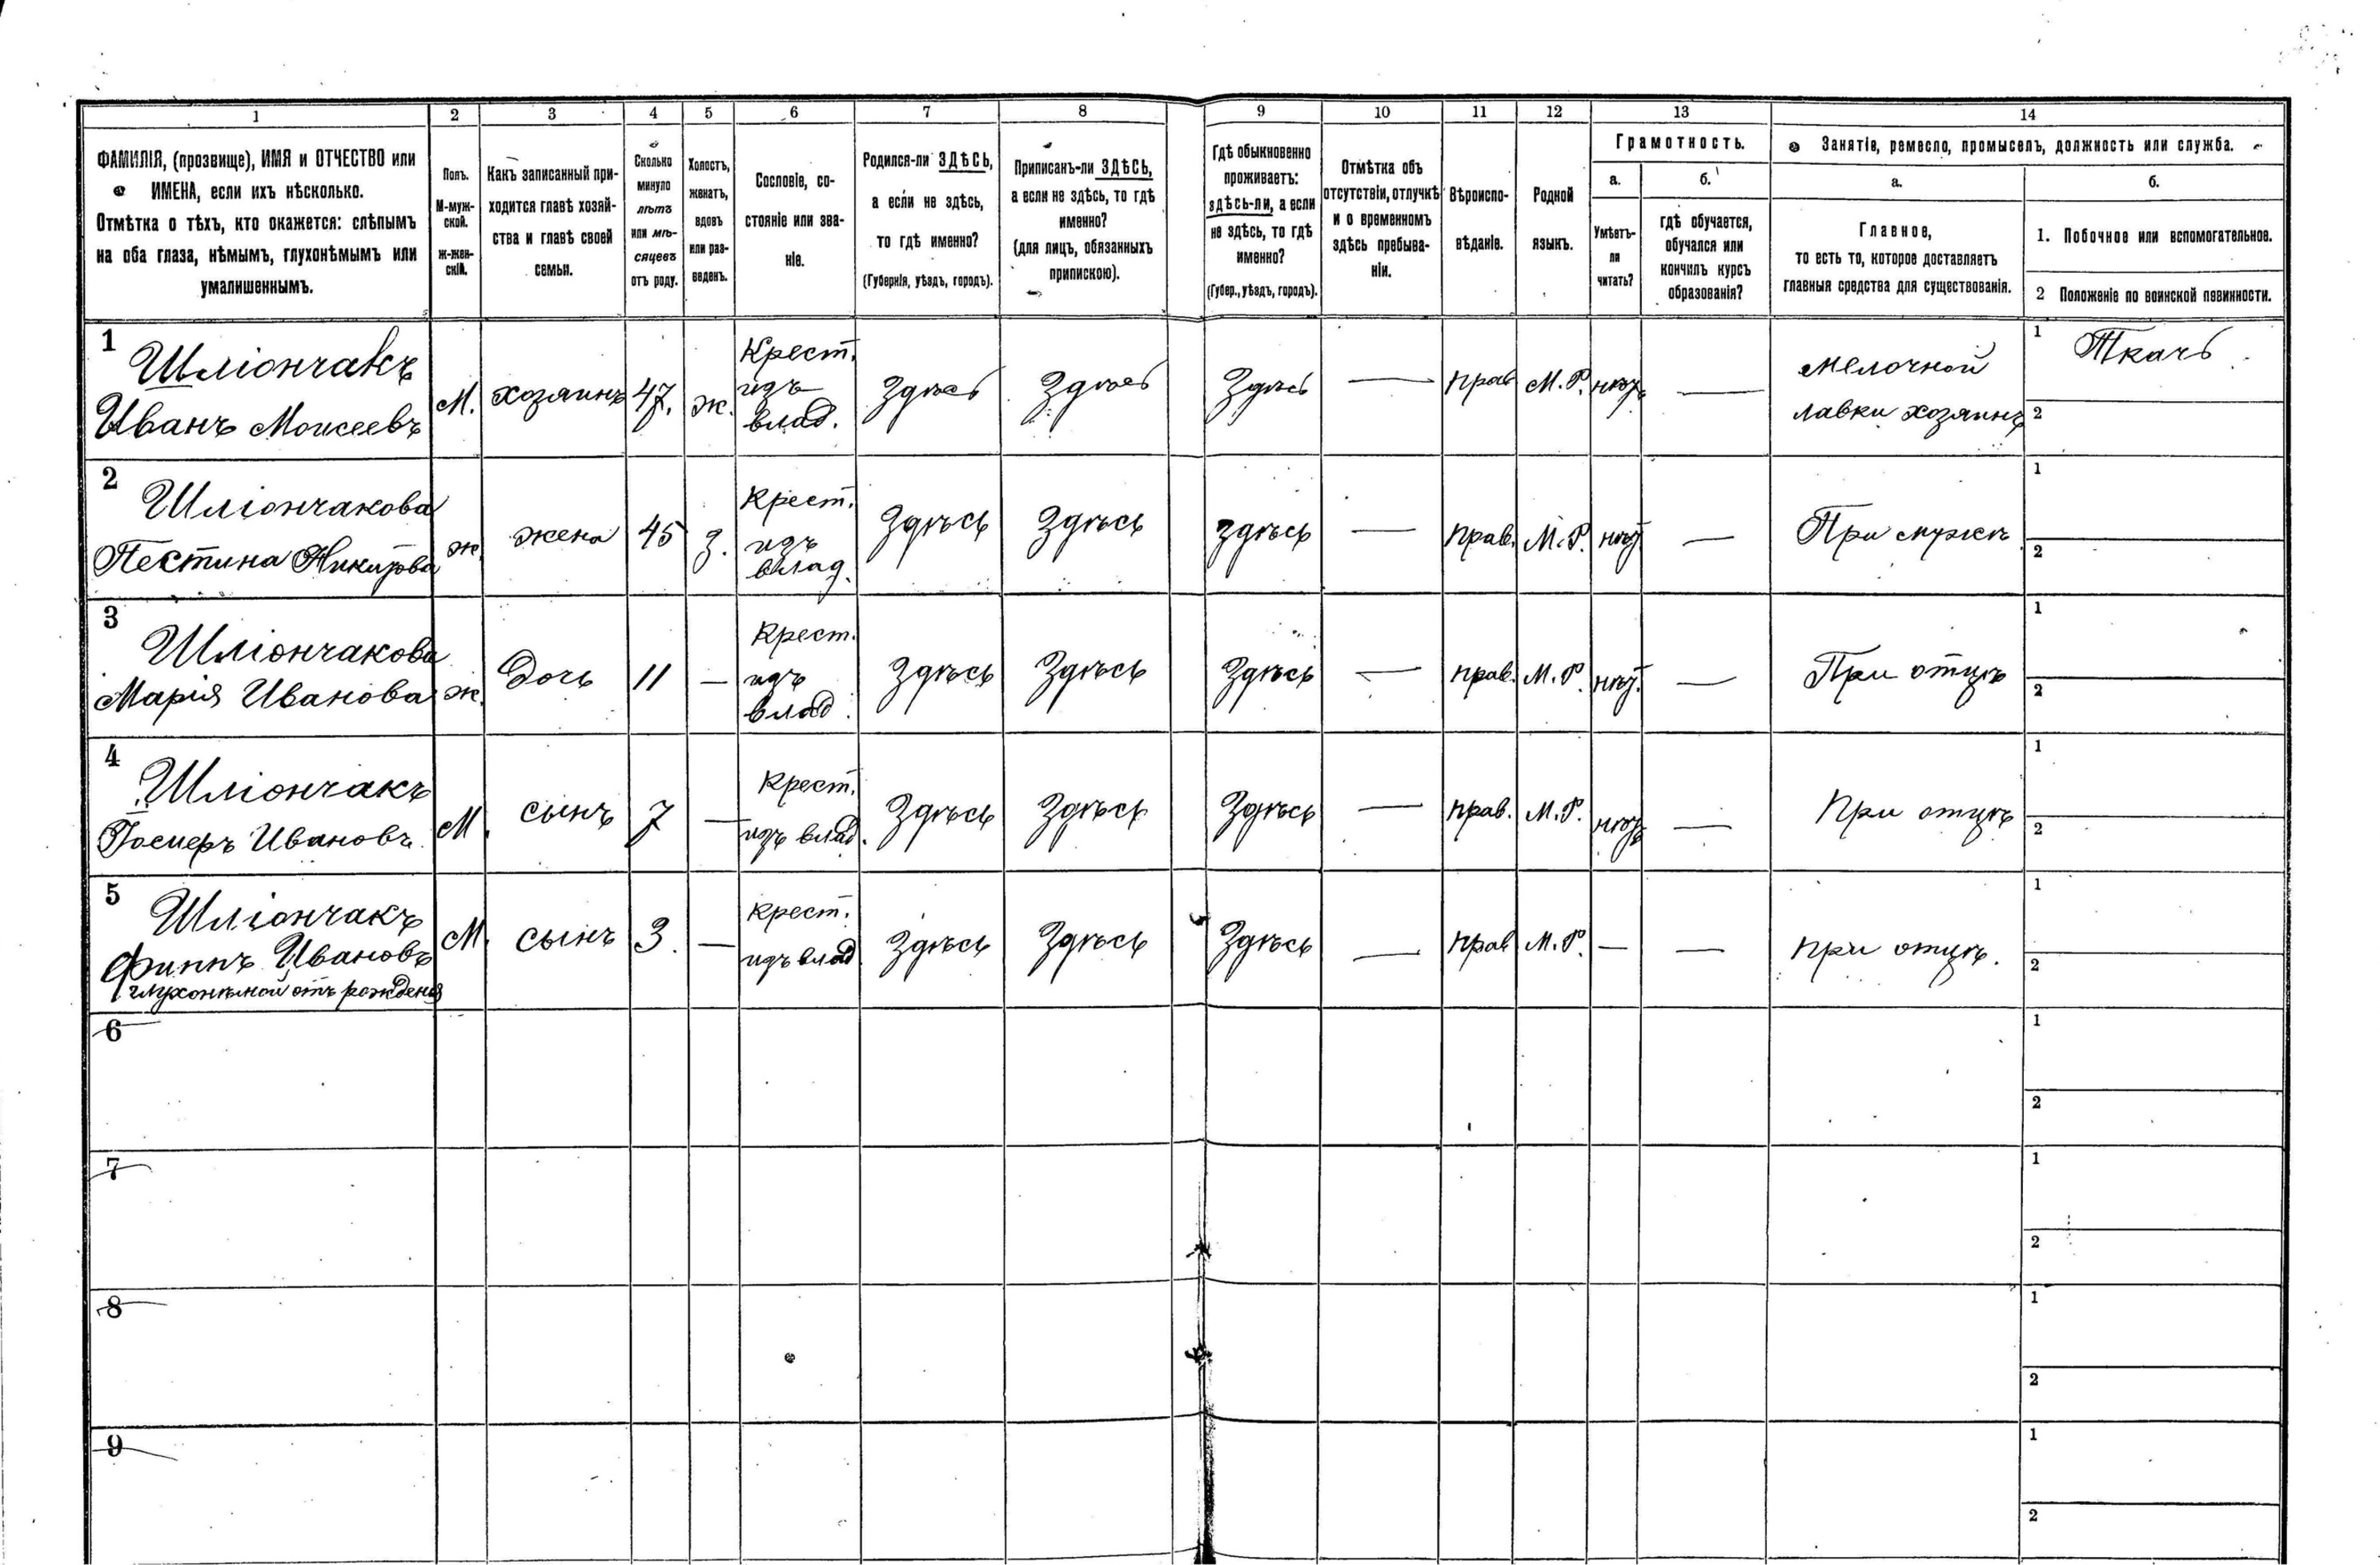 1 2 3 4 5 6 7 8 9 10 11 12 13 14
ФАМИЛІЯ, (прозвище), ИМЯ и ОТЧЕСТВО или
ИМЕНА, если ихъ нѣсколько.
Отмѣтка о тѣхъ, кто окажется: слѣпымъ
на оба глаза, нѣмымъ, глухонѣмымъ или
умалишеннымъ.
Полъ.
М-муж-
ской.
ж-жен-
скій.
Какъ записанный при-
ходится главѣ хозяй-
ства и главѣ своей
семьи.
Сколько
минуло
лѣтъ
или мѣ-
сяцевъ
отъ роду.
Холостъ,
женатъ,
вдовъ
или раз-
веденъ.
Сословіе, со-
стояніе или зва-
ніе.
Родился-ли ЗДѢСЬ,
а если не здѣсь,
то гдѣ именно?
(Губернія, уѣздъ, городъ).
Приписанъ-ли ЗДѢСЬ,
а если не здѣсь, то гдѣ
именно?
(для лицъ, обязанныхъ
припискою).
Гдѣ обыкновенно
проживаетъ:
здѣсь-ли, а если
не здѣсь, то гдѣ
именно?
(Губер., уѣздъ, городъ).
Отмѣтка объ
отсутствіи, отлучкѣ
и о временномъ
здѣсь пребыва-
ніи.
Вѣроиспо-
вѣданіе.
Родной
языкъ.
Грамотность.
а.
Умѣетъ-
ли
читать?
б.
гдѣ обучается,
обучался или
кончилъ курсъ
образованія?
Занятіе, ремесло, промыселъ, должность или служба.
а.
Главное,
то есть то, которое доставляетъ
главныя средства для существованія.
б.
1. Побочное или вспомогательное.
2 Положеніе по воинской повинности.
1
Шліончакъ
Иванъ Моисеевъ
М.
хозяинъ
47.
ж.
Крест.
изъ
влад.
Здѣсь
Здѣсь
Здѣсь
—
прав
М.Р.
нѣтъ
—
мелочной
лавки хозяинъ
1 Ткачъ
2
2
Шліончакова
Пестина Никитова
ж
жена
45
з.
Крест.
изъ
влад.
Здѣсь
Здѣсь
здѣсь
—
прав.
М.Р.
нѣт
—
При мужѣ
1
2
3
Шліончакова
Марія Иванова
ж.
Дочь
11
—
Крест.
изъ
влад.
Здѣсь
Здѣсь
Здѣсь
—
прав.
М.Р.
нѣт.
—
При отцѣ
1
2
4
Шліончакъ
Ивановъ
М.
сынъ
7
—
Крест.
изъ влад.
Здѣсь
Здѣсь
Здѣсь
—
прав.
М.Р.
нѣтъ
—
При отцѣ
1
2
5
Шліончакъ
Ивановъ
глухонѣмой отъ рожденія
М.
сынъ
3.
—
Крест.
изъ влад
Здѣсь
Здѣсь
Здѣсь
—
прав
М.Р.
—
—
при отцѣ.
1
2
6
1
2
7
1
2
8
1
2
9
1
2